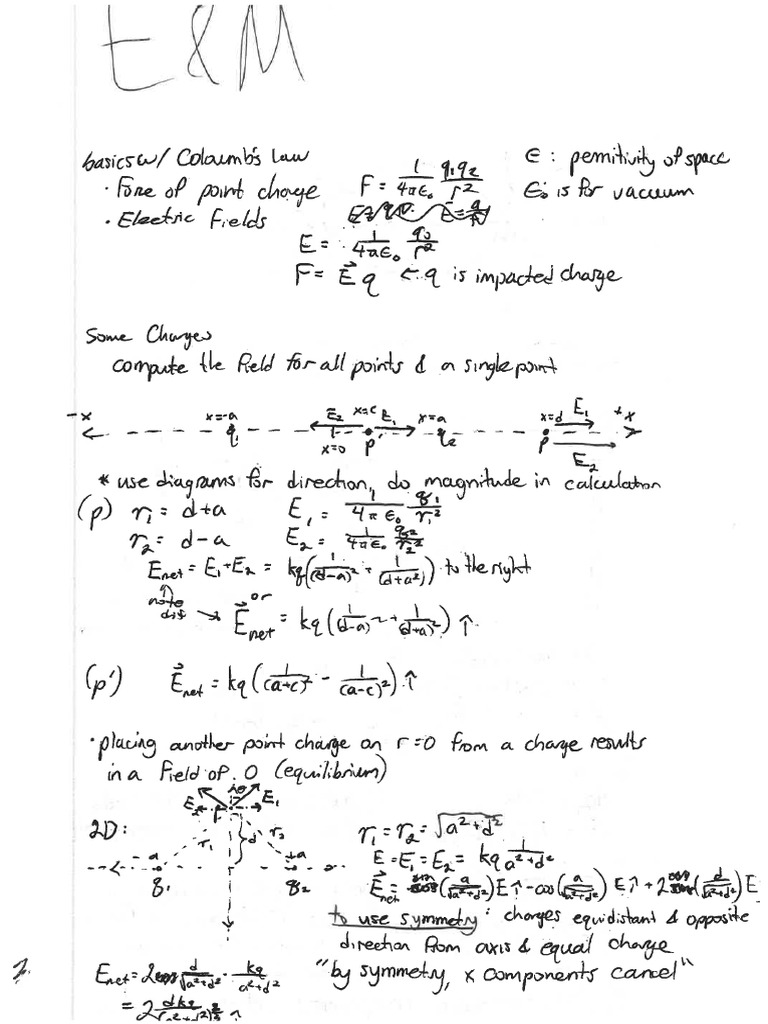 E&M
basics w/ Coloumb's Law
· Force of point charge
· Electric Fields
F = 1/4πε₀ q₁q₂/r²
ε : permitivity of space
ε₀ is for vacuum
E = 1/4πε₀ q₀/r²
F = E⃗ q ← q is impacted charge
Some Charges
compute the field for all points & a single point
-x x=-a E₂ x=c E₁ x=a x=d E₁ +x
q₁ x=0 p' q₂ p E₂
* use diagrams for direction, do magnitude in calculation
(p) r₁ = d+a E₁ = 1/4πε₀ q₁/r₁²
r₂ = d-a E₂ = 1/4πε₀ q₂/r₂²
E_net = E₁+E₂ = kq(1/(d-a)² + 1/(d+a)²) to the right
note or
→ E⃗_net = kq(1/(d-a)² + 1/(d+a)²) ↑
(p') E⃗_net = kq(1/(a+c)² - 1/(a-c)²) ↑
· placing another point charge on r=0 from a charge results
in a field of 0 (equilibrium)
E₂ θ E₁
2D: r₁ d r₂
-a +a
q₁ q₂
r₁ = r₂ = √a²+d²
E = E₁ = E₂ = kq 1/a²+d²
E⃗_net = (a/√a²+d²) E↑ - cos(a/√a²+d²) E↑ + 2 (d/√a²+d²) E
to use symmetry: charges equidistant & opposite
direction from axis & equal charge
"by symmetry, x components cancel"
E_net = 2 d/√a²+d² · kq/a²+d²
= 2 dkq/(a²+d²)